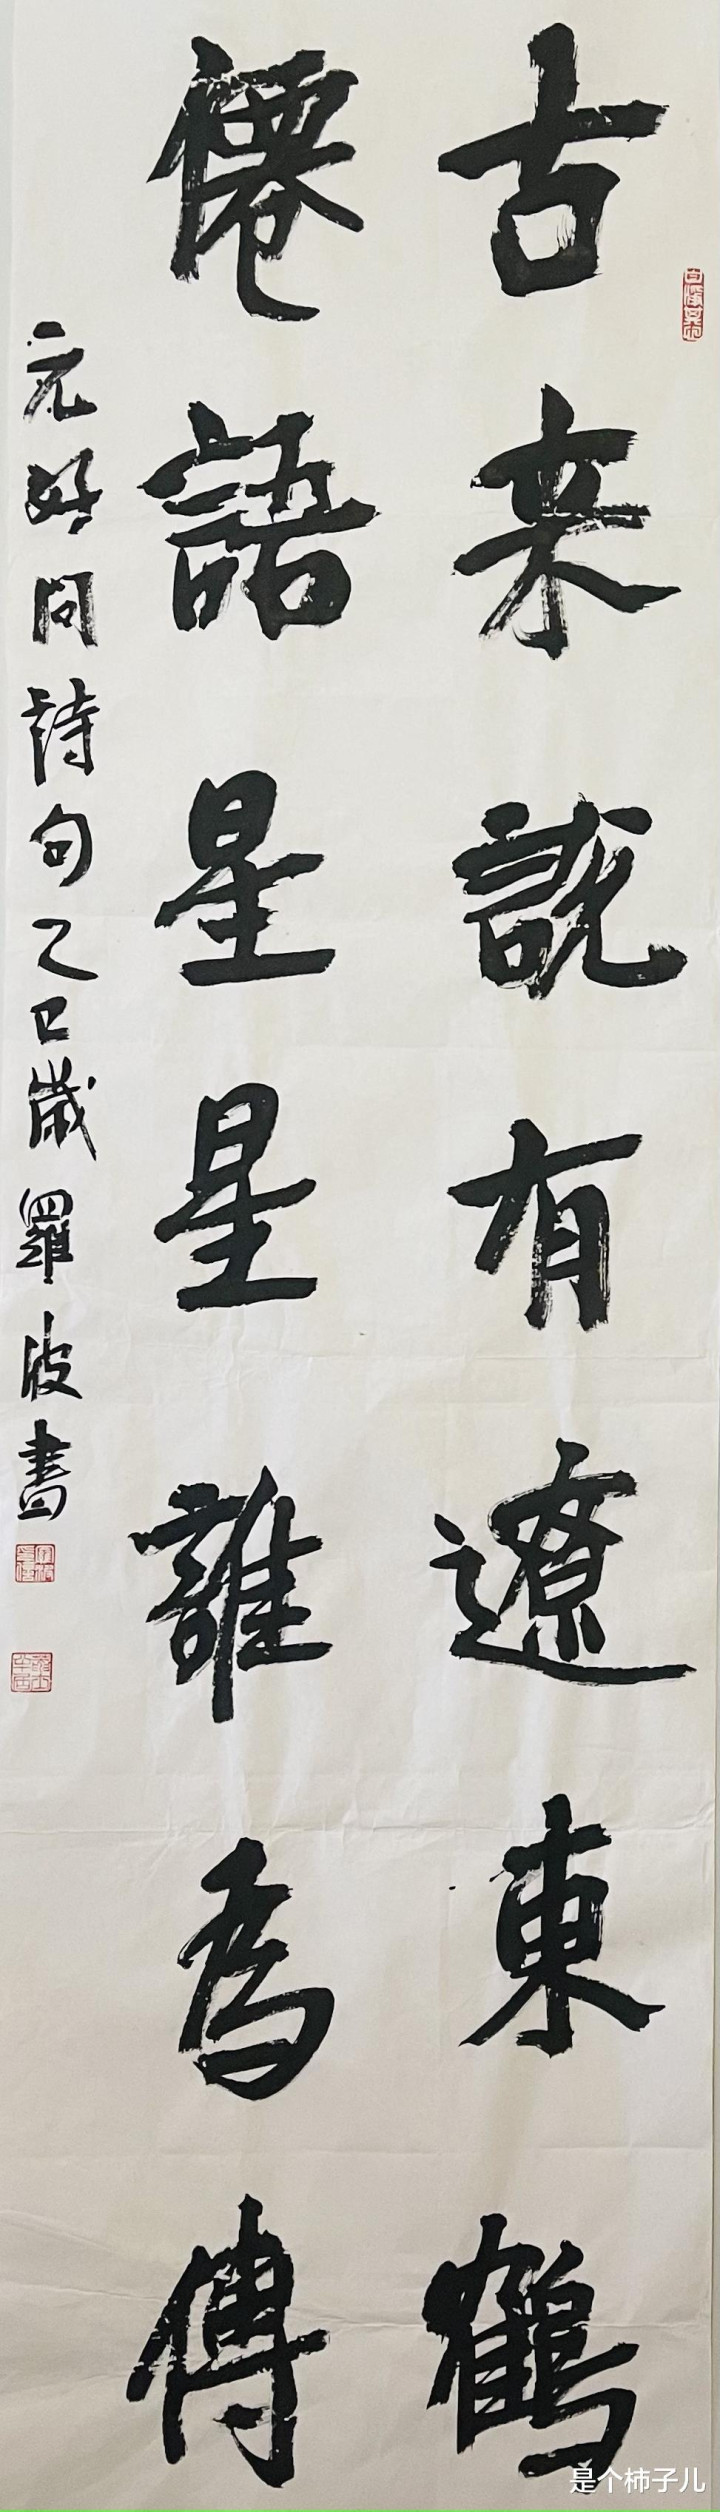 古来説有遼東鶴
僊語星星誰為傳
元好问詩句乙巳歲羅波書
是个柿子儿